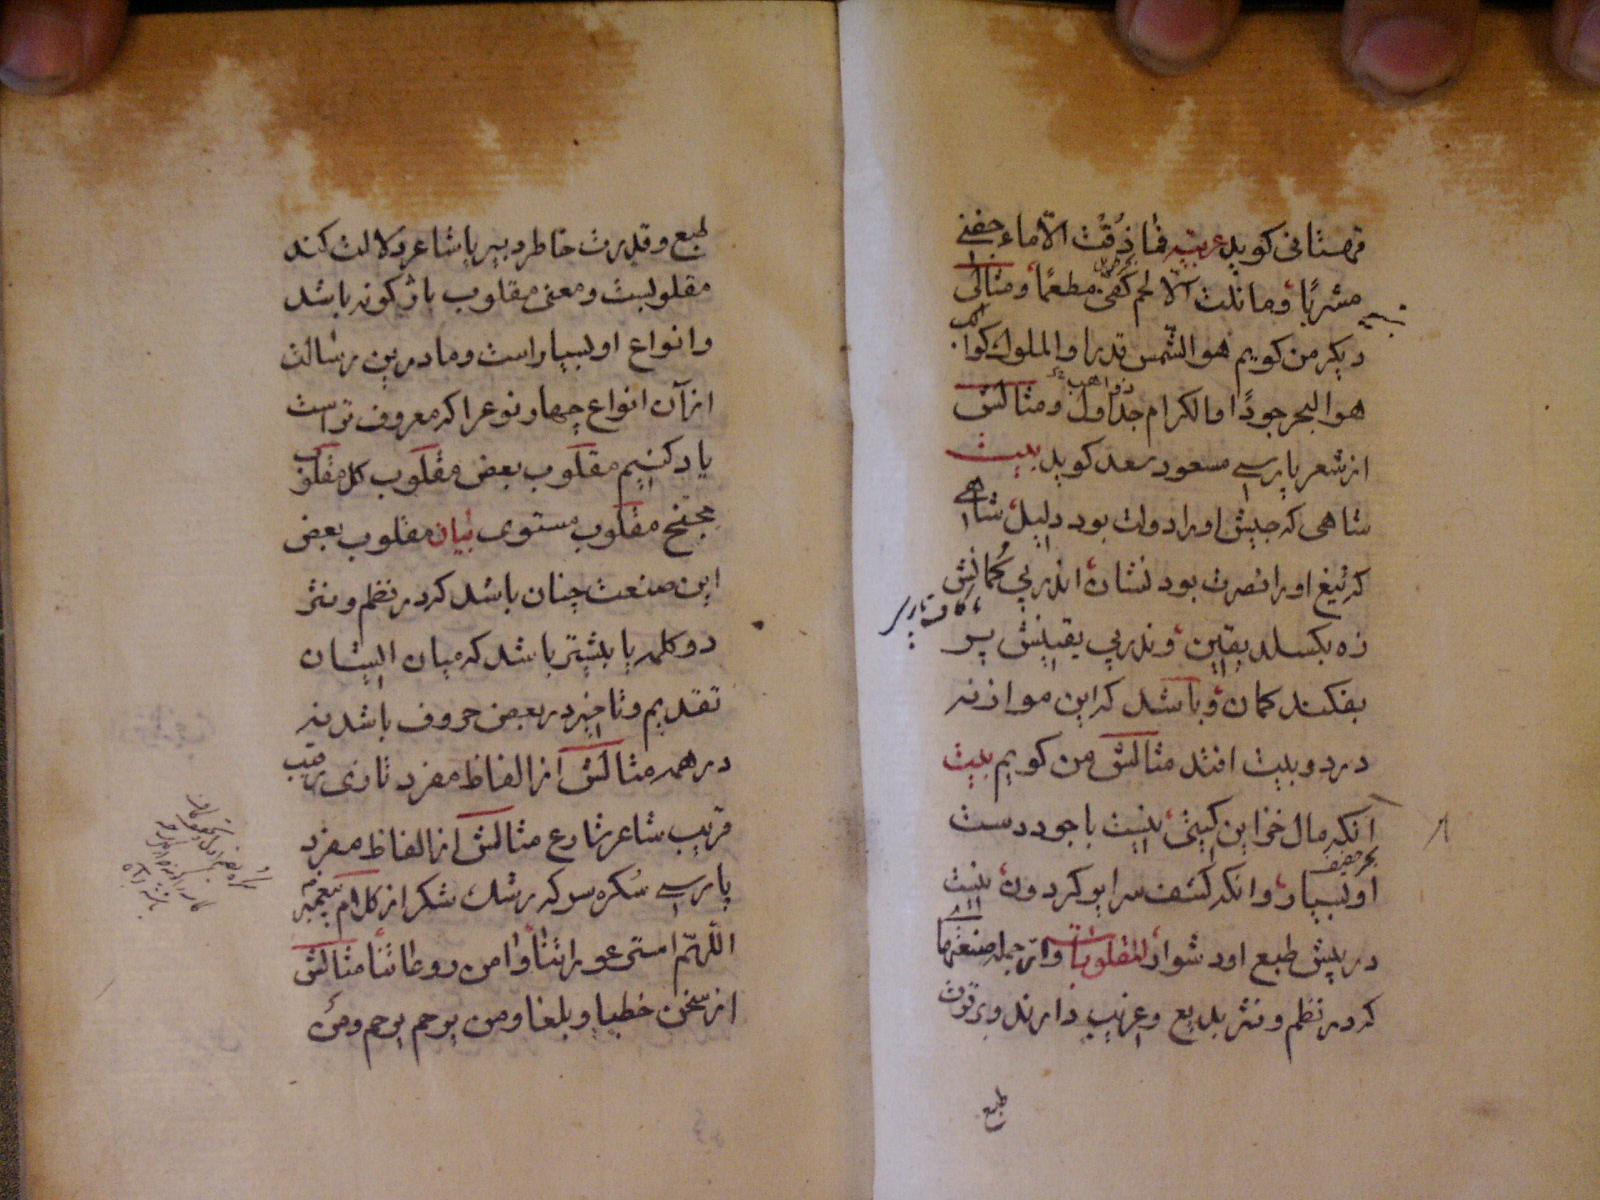 قهستانی کوید عربیه فما ذقت الّا ماء جفنی
مشربًا وما نلت الّا لحم کفی مطعمًا ومثالی
دیکر من کویم هو الشمس قدرا والملوك کواکب
هو البحر جودًا والکرام جداول ومثالش
از شعر پارسی مسعود سعد کوید بیت
شاهی که جیش اورا دولت بود دلیل شاهی
که تیغ اورا نصرت بود نشان اندر پی کمانش
زه بکسلد یقین وندر پی یقینش پر
بفکند کمان وباشد که این موازنه
در دو بیت افتد مثالش من کویم بیت
آنکه مال خزاین کیتی نیست با جود دست
بحر خفیف
او بسیار وانکه کشف سرایر کردون نیست
در پیش طبع او دشوار المقلوبات واز جمله صنعتها
که در نظم ونثر بدیع وغریب دارند وبر قوت
طبع
طبع وقدرت خاطر دبیر یا شاعر دلالت کند
مقلوبست ومعنی مقلوب باژکونه باشد
وانواع او بسیارست وما درین رسالت
از آن انواع چهار نوع را که معروف تر است
یاد کنیم مقلوب بعض مقلوب کل مقلوب
مجنح مقلوب مستوی بیان مقلوب بعض
این صنعت چنان باشد که در نظم ونثر
دو کلمه یا بیشتر باشد که میان ایشان
تقدیم وتاخیر در بعض حروف باشد نه
در همه مثالش از الفاظ مفرد تازی رقیب
قریب شاعر شارع مثالش از الفاظ مفرد
پارسی شکره سوکه رشك شکر از کلام پیغمبر
اللّهم استر عوراتنا وامن روعاتنا مثالش
از سخن خطبا وبلغا ومن یرحم یرحم ومن